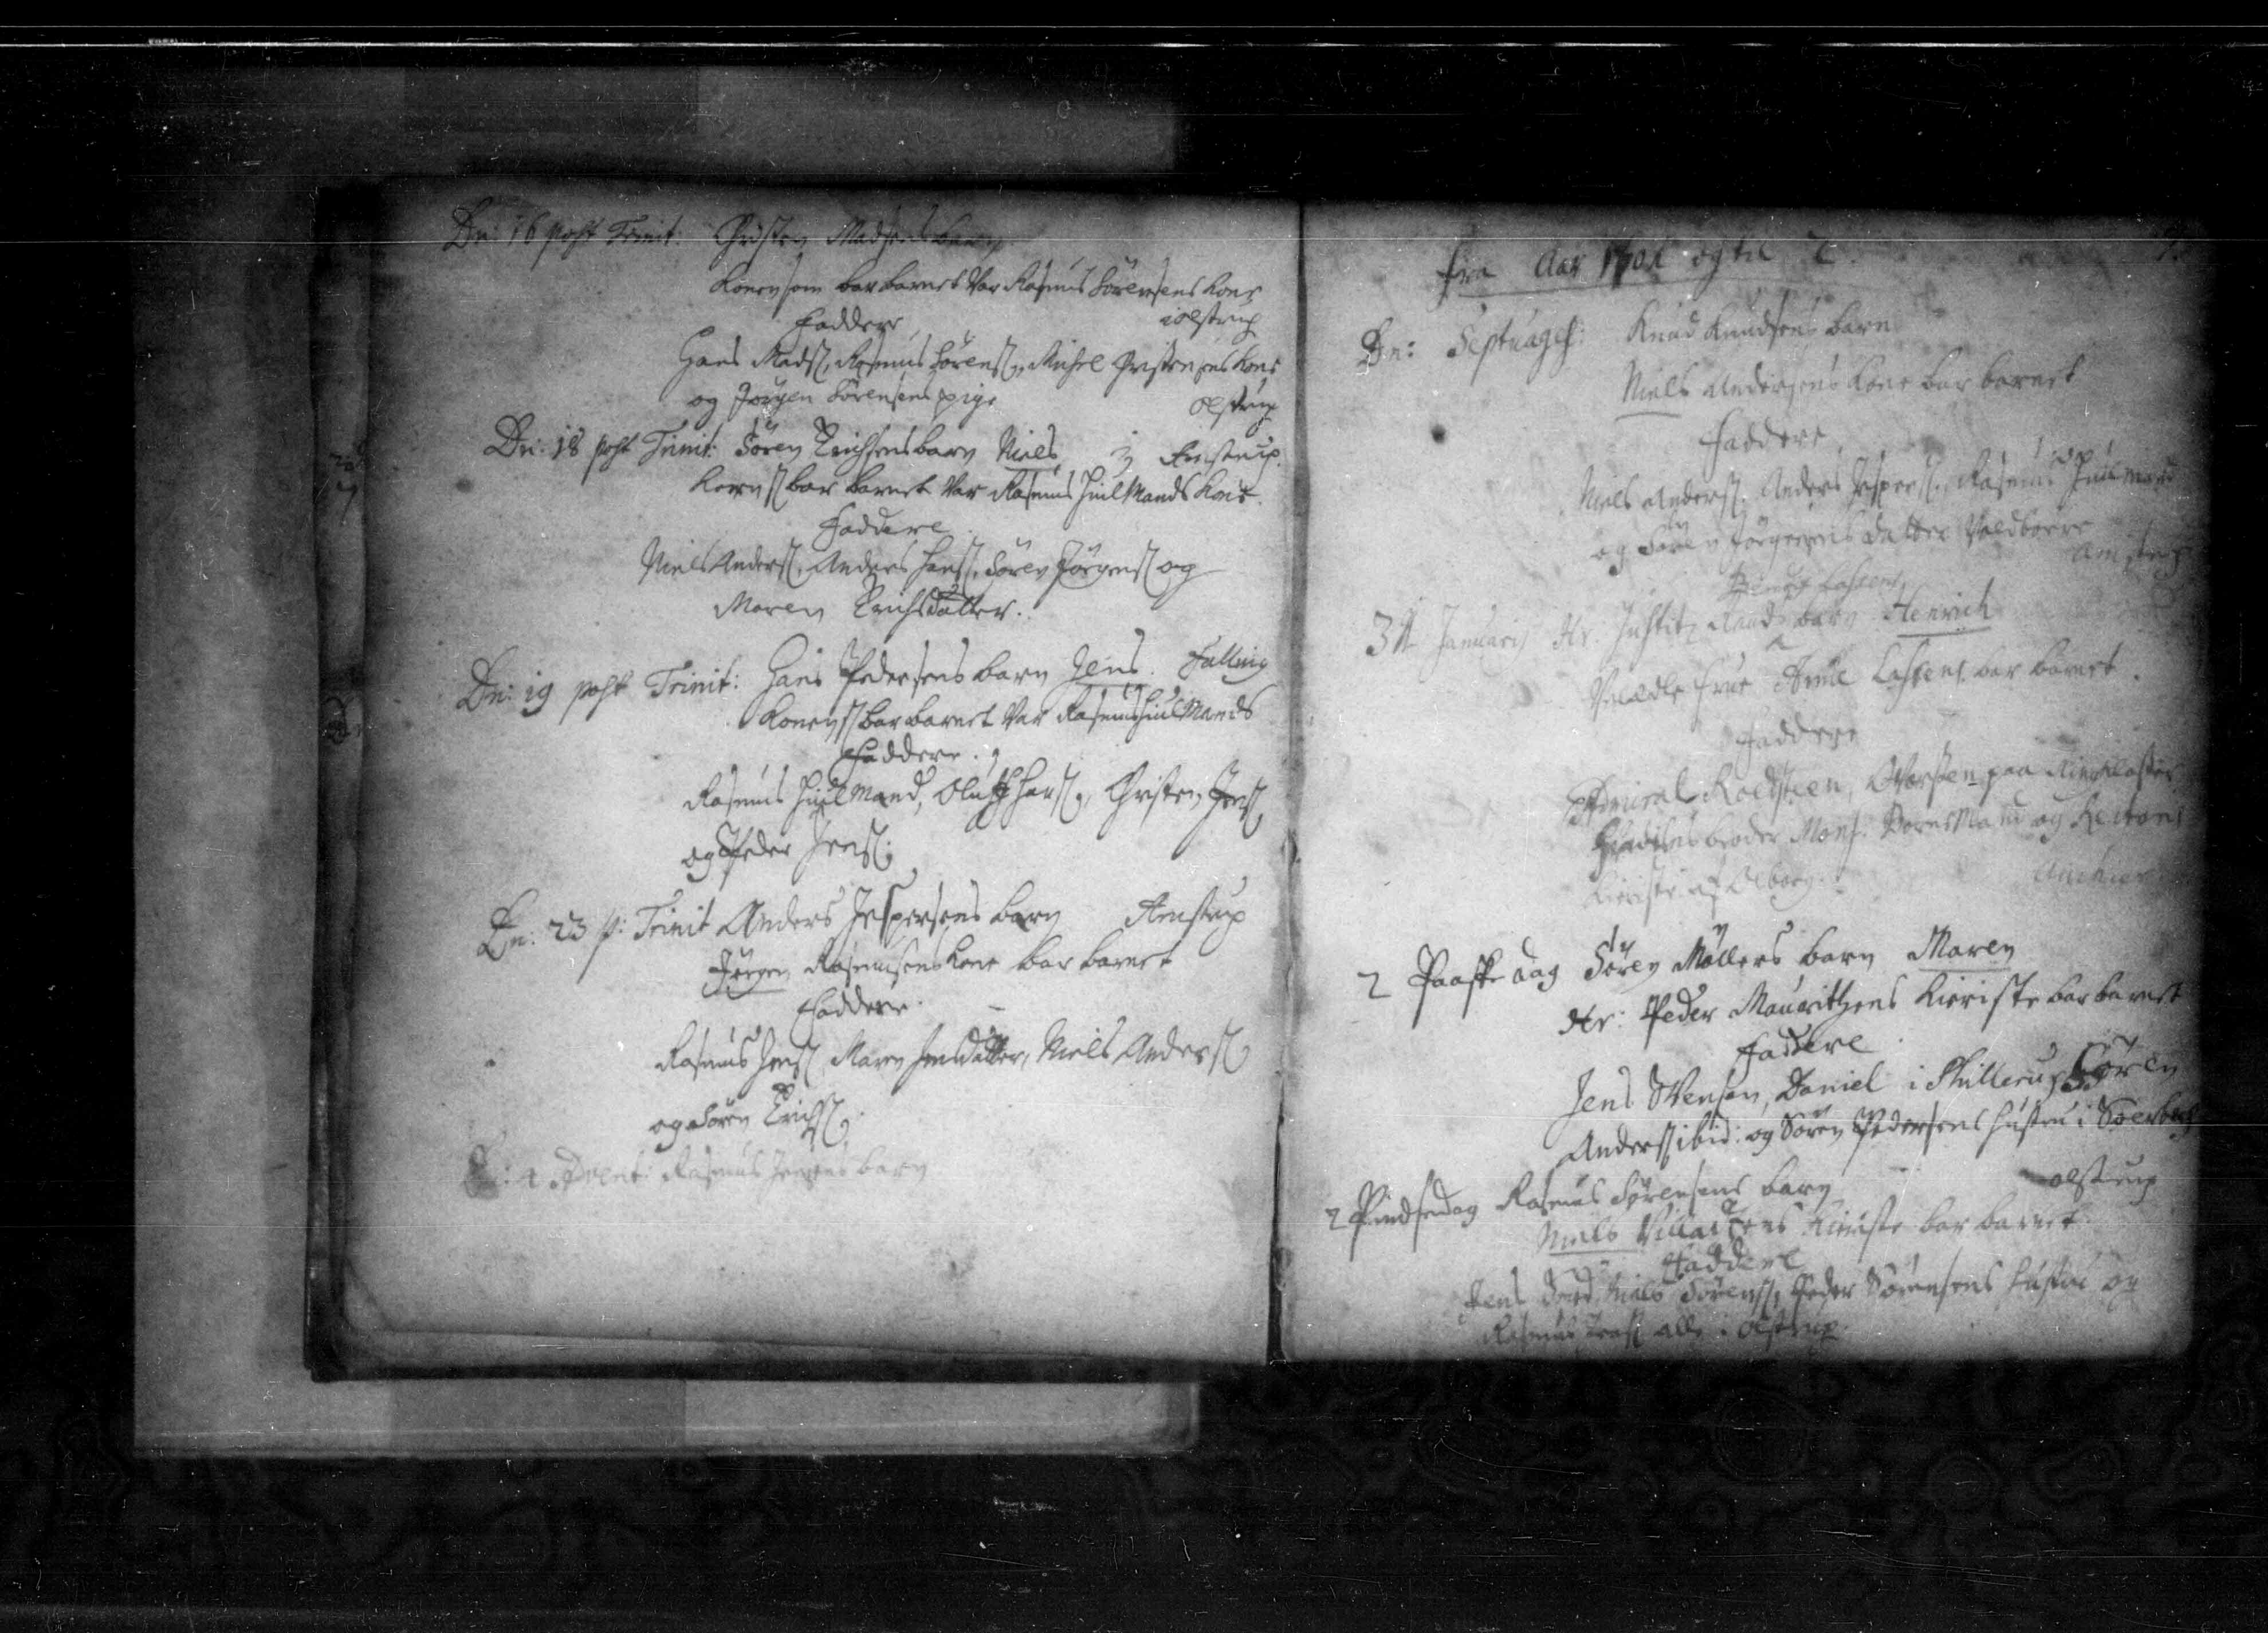 Dn: 16 post Trinit: Christen Madsens barn
Konen som bar barnet var Rasmus Sörensens Kone
Faddere
i Olstrup
Hans Mads: Rasmus Sörens: Michel Christensens Kone
og Jörgen Sörensens pige
Olstrup
Dn: 18 post Trinit: Sören Erichsens barn Niels i Amstrup.
Konen s: bar barnet var Rasmus Hiulmands Kone.
Faddere
Niels Anders: Anders Hans: Sören Jörgens: og
Maren Erichsdatter.
Dn: 19 post Trinit: Hans Pedersens barn Jens. Falling
Konen s: bar barnet var Rasmus Hiulmands
Faddere.
Rasmus Hiulmand, Oluff Hans: Christen Jens:
og Peder Jens:
Dn: 23 p: Trinit Anders Jespersens barn Amstrup
Jörgen Rasmusens Kone bar barnet
Faddere.
Rasmus Jens: Maren Jensdatter, Niels Anders:
og Sören Erichs:
Advent: Rasmus Jensens barn
fra Aar 1701 og til 2.
Dn: Septuages: Knud Knudsens barn
Niels Andersens Kone bar barnet
Faddere
Niels Anders: Anders Jespers: Rasmus Hiulmand
og Sören Jörgensens datter Valdborre
Amstrup
31 Januarij Hr. Justitz Raad barn Henrich
Velædle Frue Anne Lassens bar barnet.
Faddere
Admiral Roedsteen, Obersten paa
broder Mons. og Rectoris
Kieriste af Aalborg.
2 Paaske dag Sören Möllers barn Maren
Hr: Peder Mauritzens Kieriste bar barnet
Faddere
Jens Svensen, Daniel i Phillerup Sören
Anders: ibid: og Sören Pedersens hustru i
2 Pindsedag Rasmus Sörensens barn Olstrup
Niels Kieriste bar barnet.
Faddere
Jens Niels Sörens: Peder Sörensens hustru og
Rasmus alle i Olstrup.